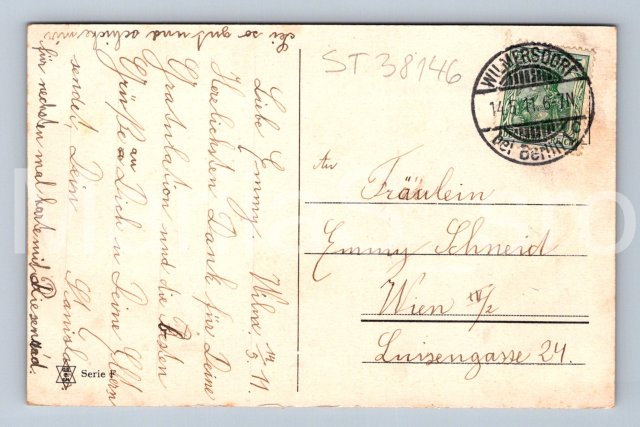 ST 38146
WILMERSDORF
14.5.11. 6-7N.
bei Berlin
An
Fräulein
Emmy Schneid
Wien IV/2
Luisengasse 24.
Liebe Emmy. Wilm. 14/5. 11.
Herzlichsten Dank für Deine
Gratulation und die Besten
Grüße an Dich u Deine Eltern
sendet, Dein Stanislaus.
für nechsten mal karte mit Riesenrad.
sei so gut und schicke mir
Serie